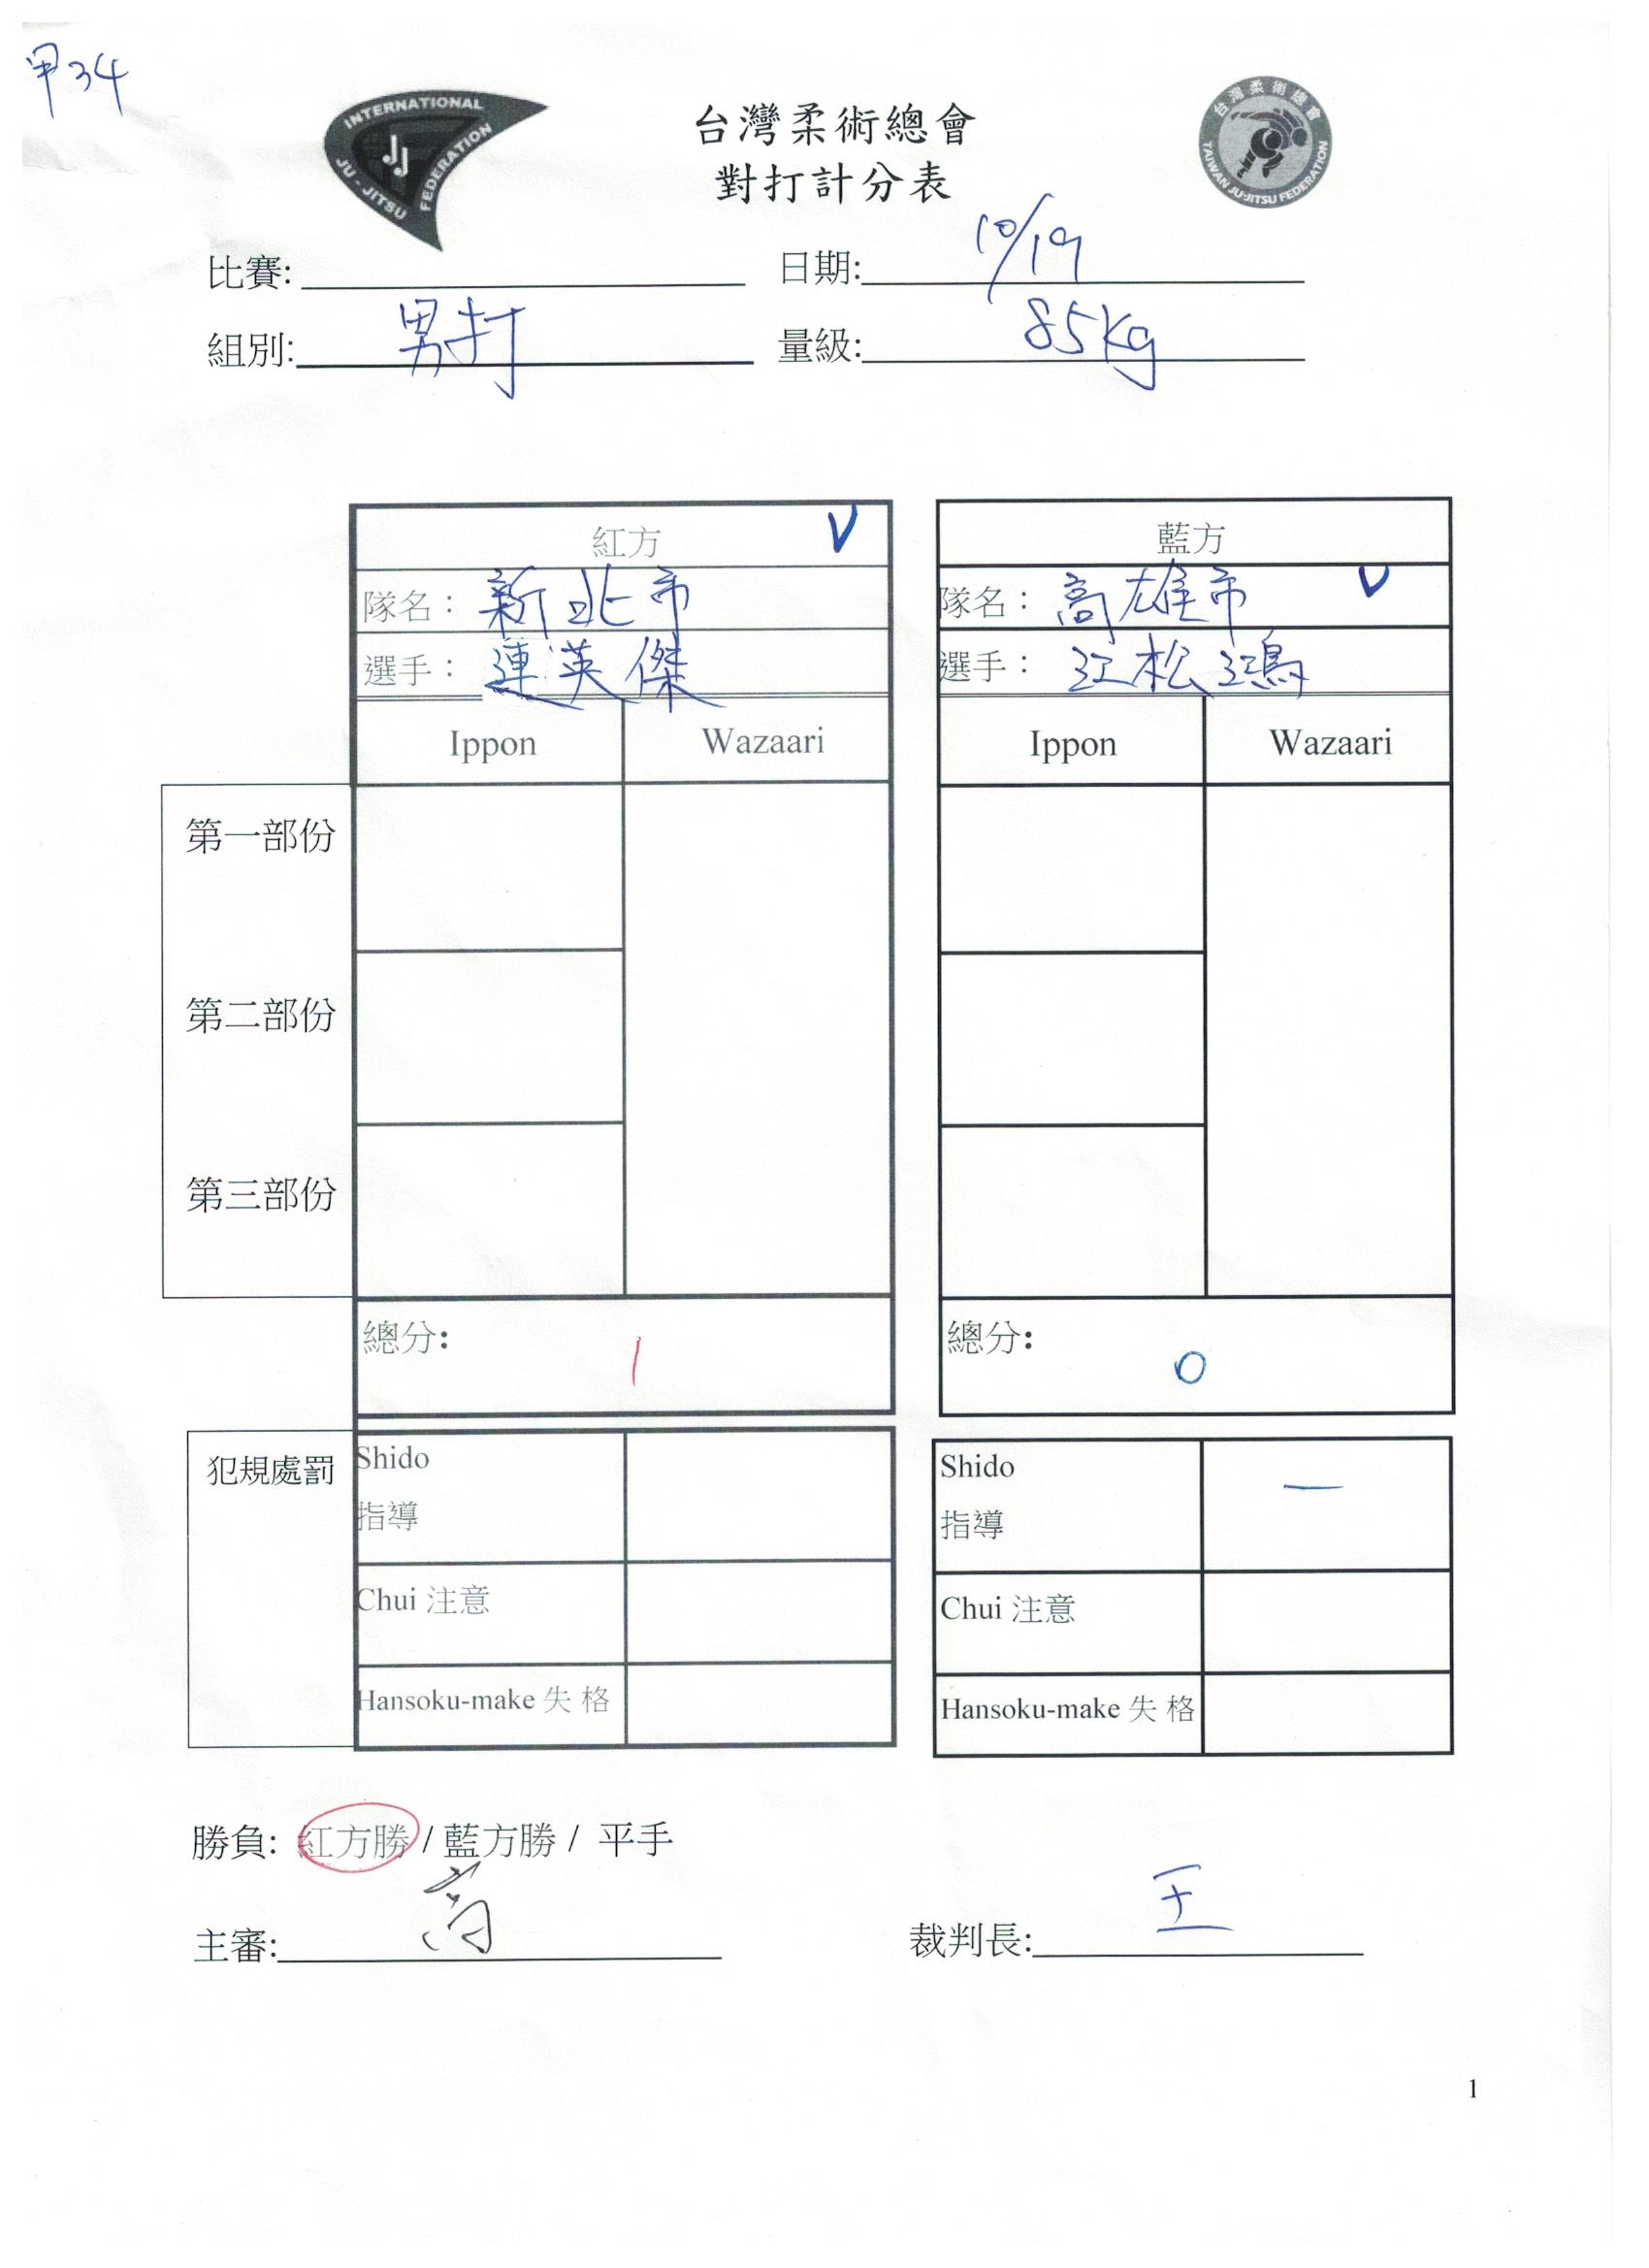 甲34
INTERNATIONAL
JU-JITSU FEDERATION
JJ
台灣柔術總會
對打計分表
台灣柔術總會
TAIWAN JU-JITSU FEDERATION
比賽: 日期: 10/19
組別: 男打 量級: 85kg
紅方 V 藍方
隊名: 新北市 隊名: 高雄市 V
選手: 連英傑 選手: 江松鴻
Ippon Wazaari Ippon Wazaari
第一部份
第二部份
第三部份
總分: 1 總分: 0
犯規處罰 Shido Shido 一
指導 指導
Chui 注意 Chui 注意
Hansoku-make 失 格 Hansoku-make 失 格
勝負: 紅方勝 / 藍方勝 / 平手
主審: 裁判長: 王
1